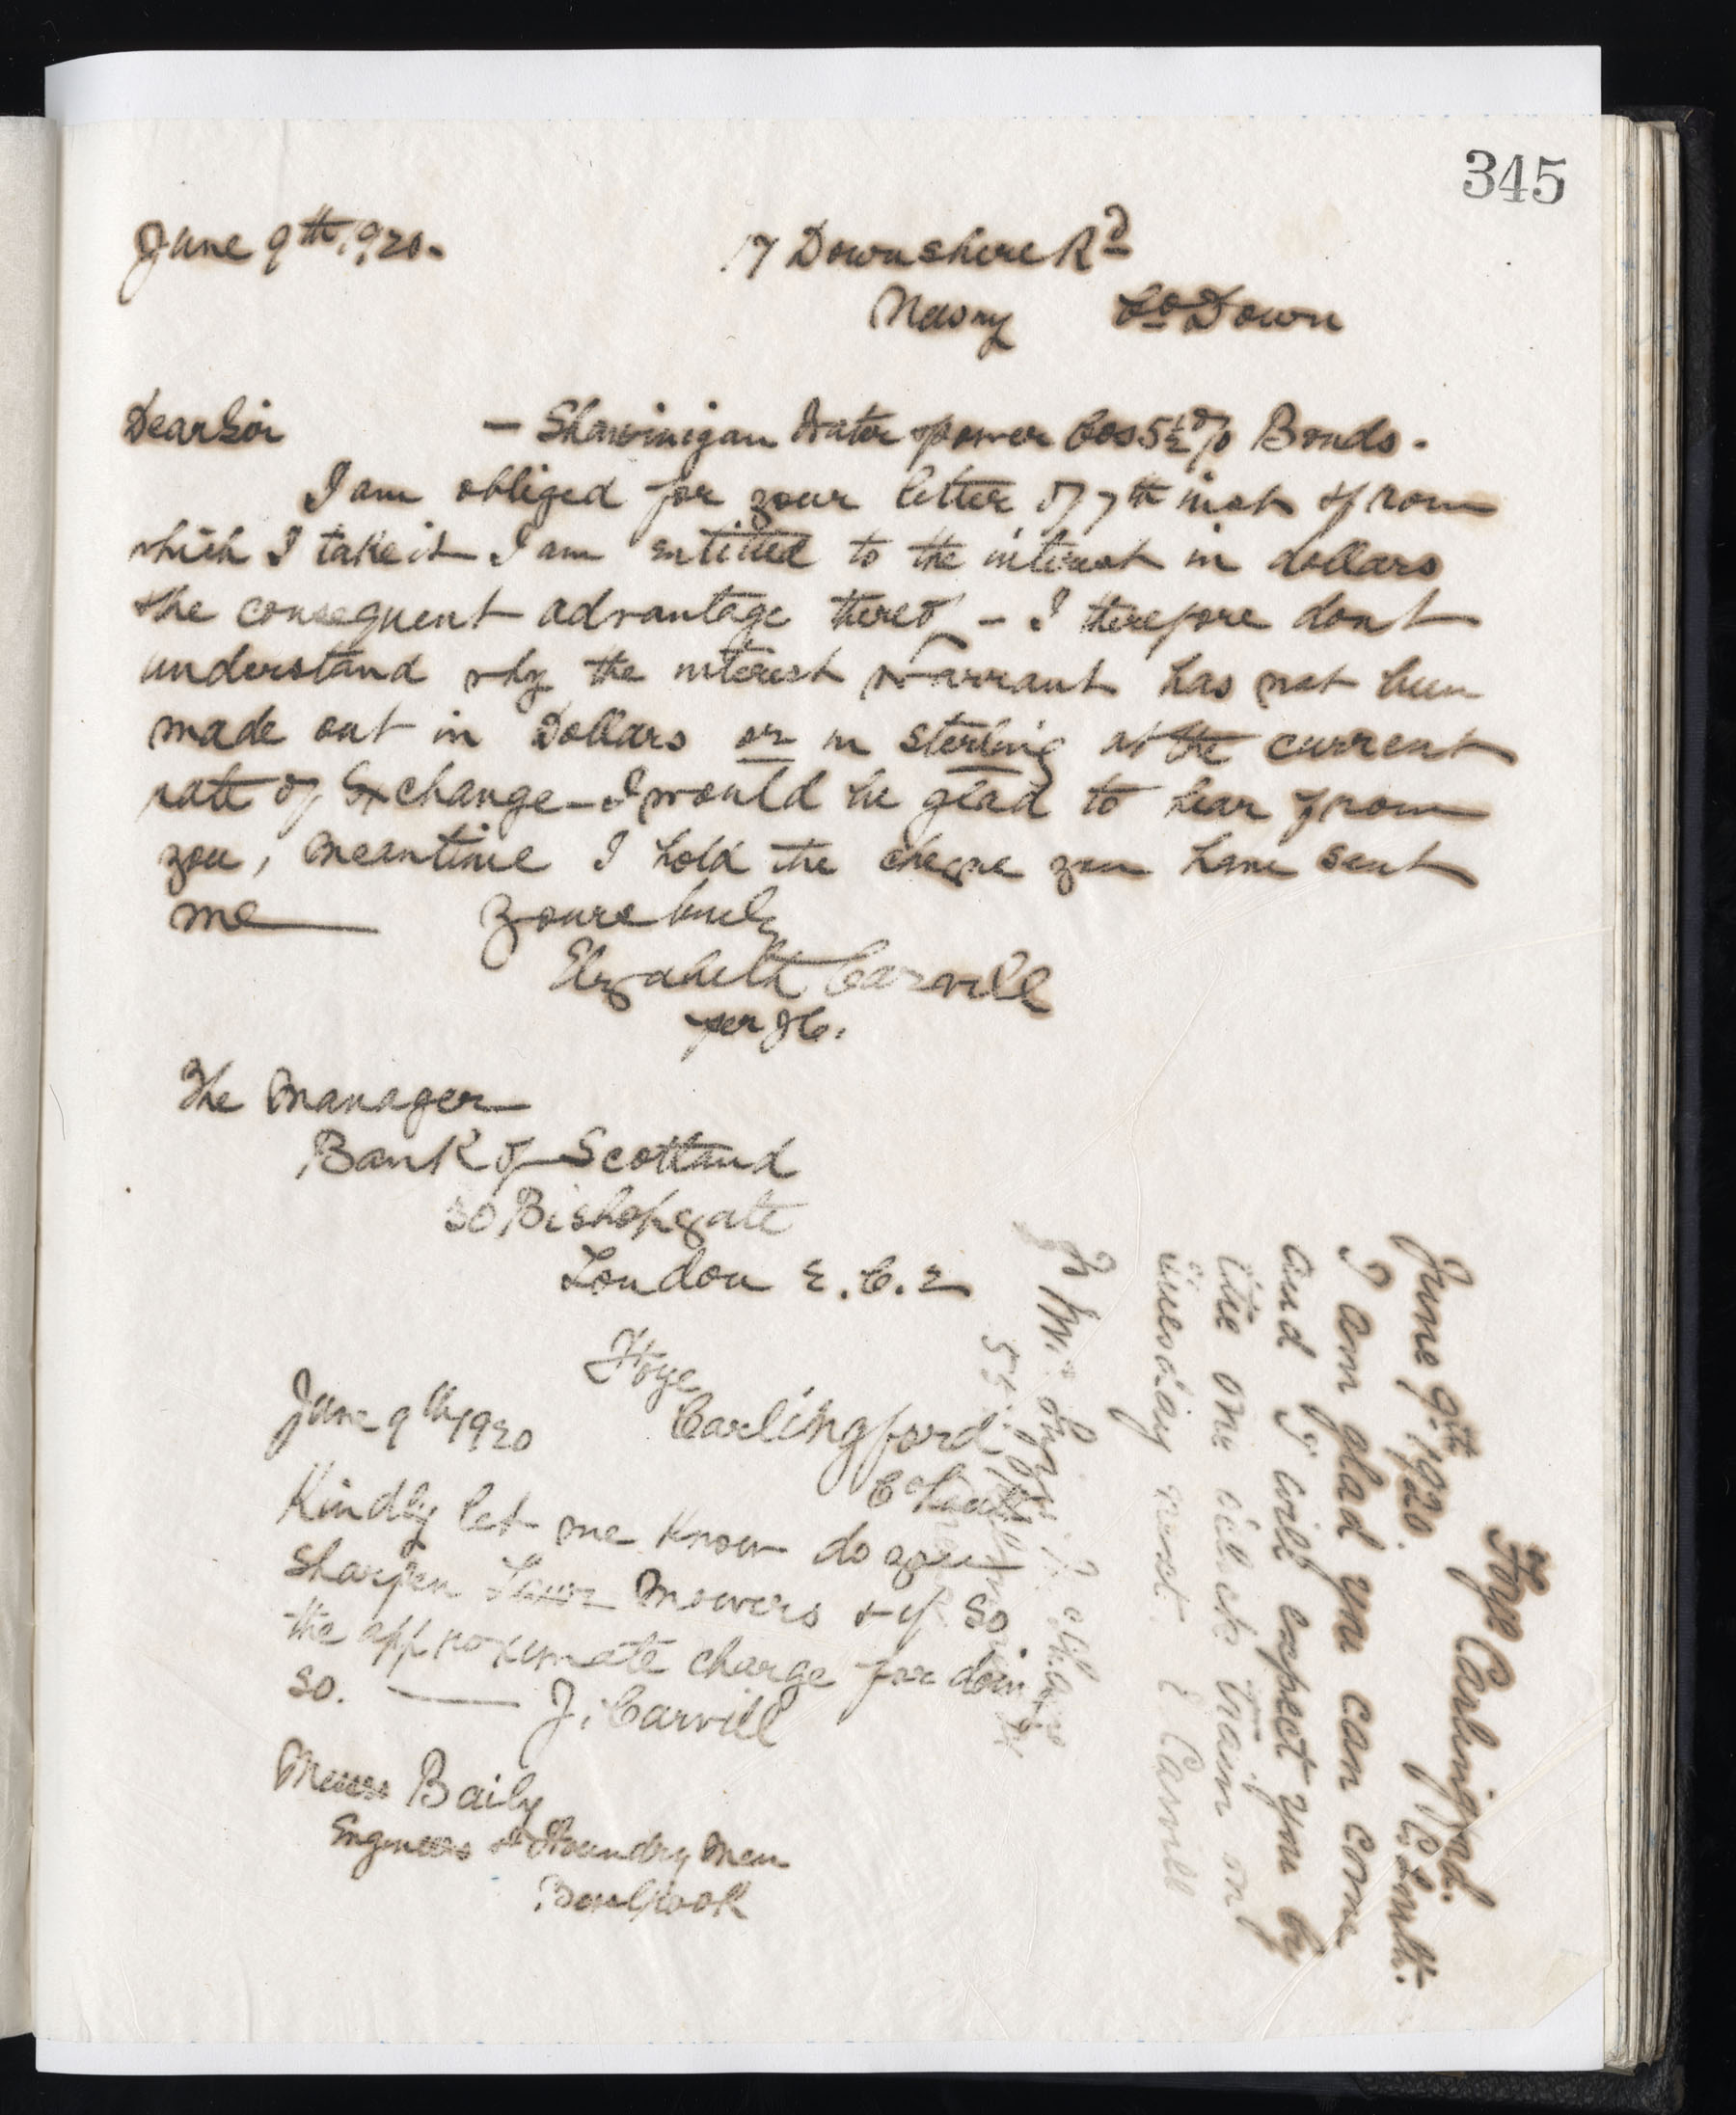 345
June 9th 1920. 17 Downshire Rd
Newry Co Down
Dear Sir — Shawinigan Water power Cos 5½% Bonds.
I am obliged for your letter of 7th inst & from
which I take it I am entitled to the interest in dollars
& the consequent advantage thereof — I therefore dont
understand why the interest Warrant has not been
made out in Dollars or in sterling at the current
rate of Exchange — I would be glad to hear from
you, meantime I hold the cheque you have sent
me — Yours truly
Elizabeth Carvill
per JC.
The Manager
Bank of Scotland
30 Bishopsgate
London E.C.2
Foye
June 9th 1920 Carlingford
Co Louth
Kindly let me know do you
sharpen Lawn Mowers & if so
the approximate charge for doing
so. — J. Carvill
Messrs Baily
Engineers & Foundry Men
Bessbrook
Foye Carlingford.
June 9th 1920. Co Louth.
I am glad you can come
and I will expect you by
the one o'clock train on
Tuesday next. E Carvill